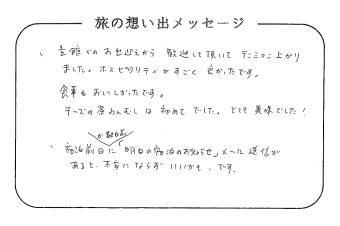 旅の想い出メッセージ
、玄館でのお出迎えから 歓迎して頂いて テンション上がり
ました。ホスピタリティがすごく良かったです。
食事もおいしかったです。
チーズの茶わんむしは初めてでした。とても美味でした!
か数日前
、宿泊前日に「明日の宿泊のお知らせ」メール送信が
あると、不安にならず いいかも、です。